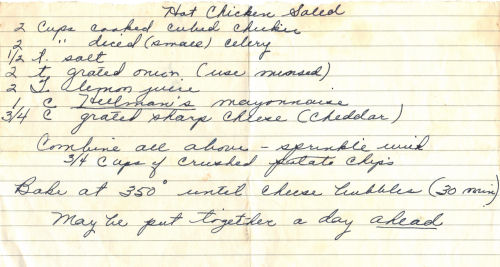 Hot Chicken Salad
2 Cups cooked cubed chicken
2 " diced (small) celery
1/2 t. salt
2 t. grated onion (use minsed)
2 T. lemon juice
1 C Hellman's mayonnaise
3/4 C grated sharp cheese (Cheddar)
Combine all above - sprinkle with
3/4 cups of crushed potato chips
Bake at 350° until cheese bubbles (30 min)
May be put together a day ahead